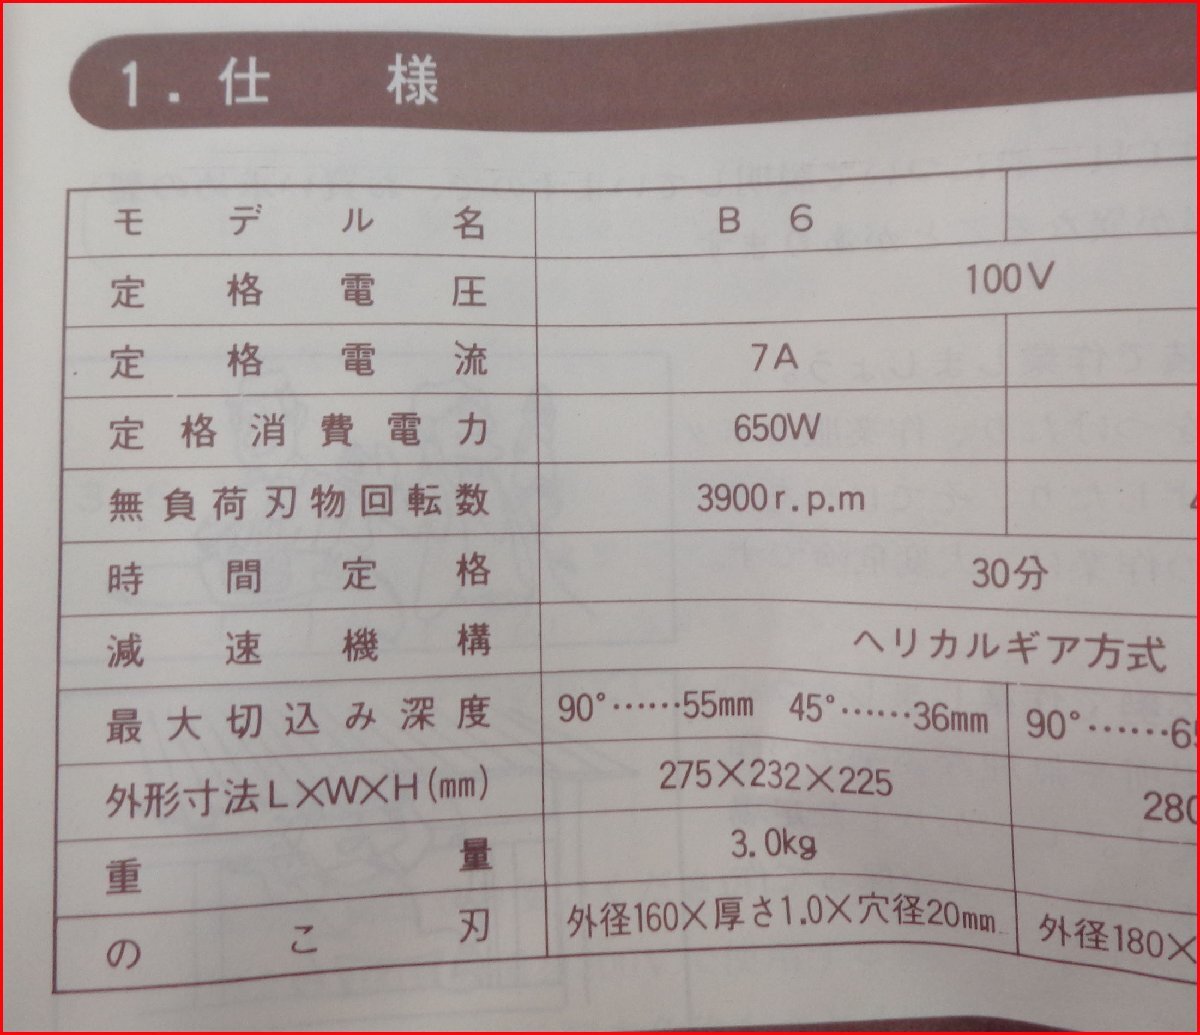 1. 仕様
モデル名 B 6
定格電圧 100V
定格電流 7A
定格消費電力 650W
無負荷刃物回転数 3900r.p.m
時間定格 30分
減速機構 ヘリカルギア方式
最大切込み深度 90°……55mm 45°……36mm 90°……6
外形寸法L×W×H(mm) 275×232×225 280
重量 3.0kg
のこ刃 外径160×厚さ1.0×穴径20mm 外径180×